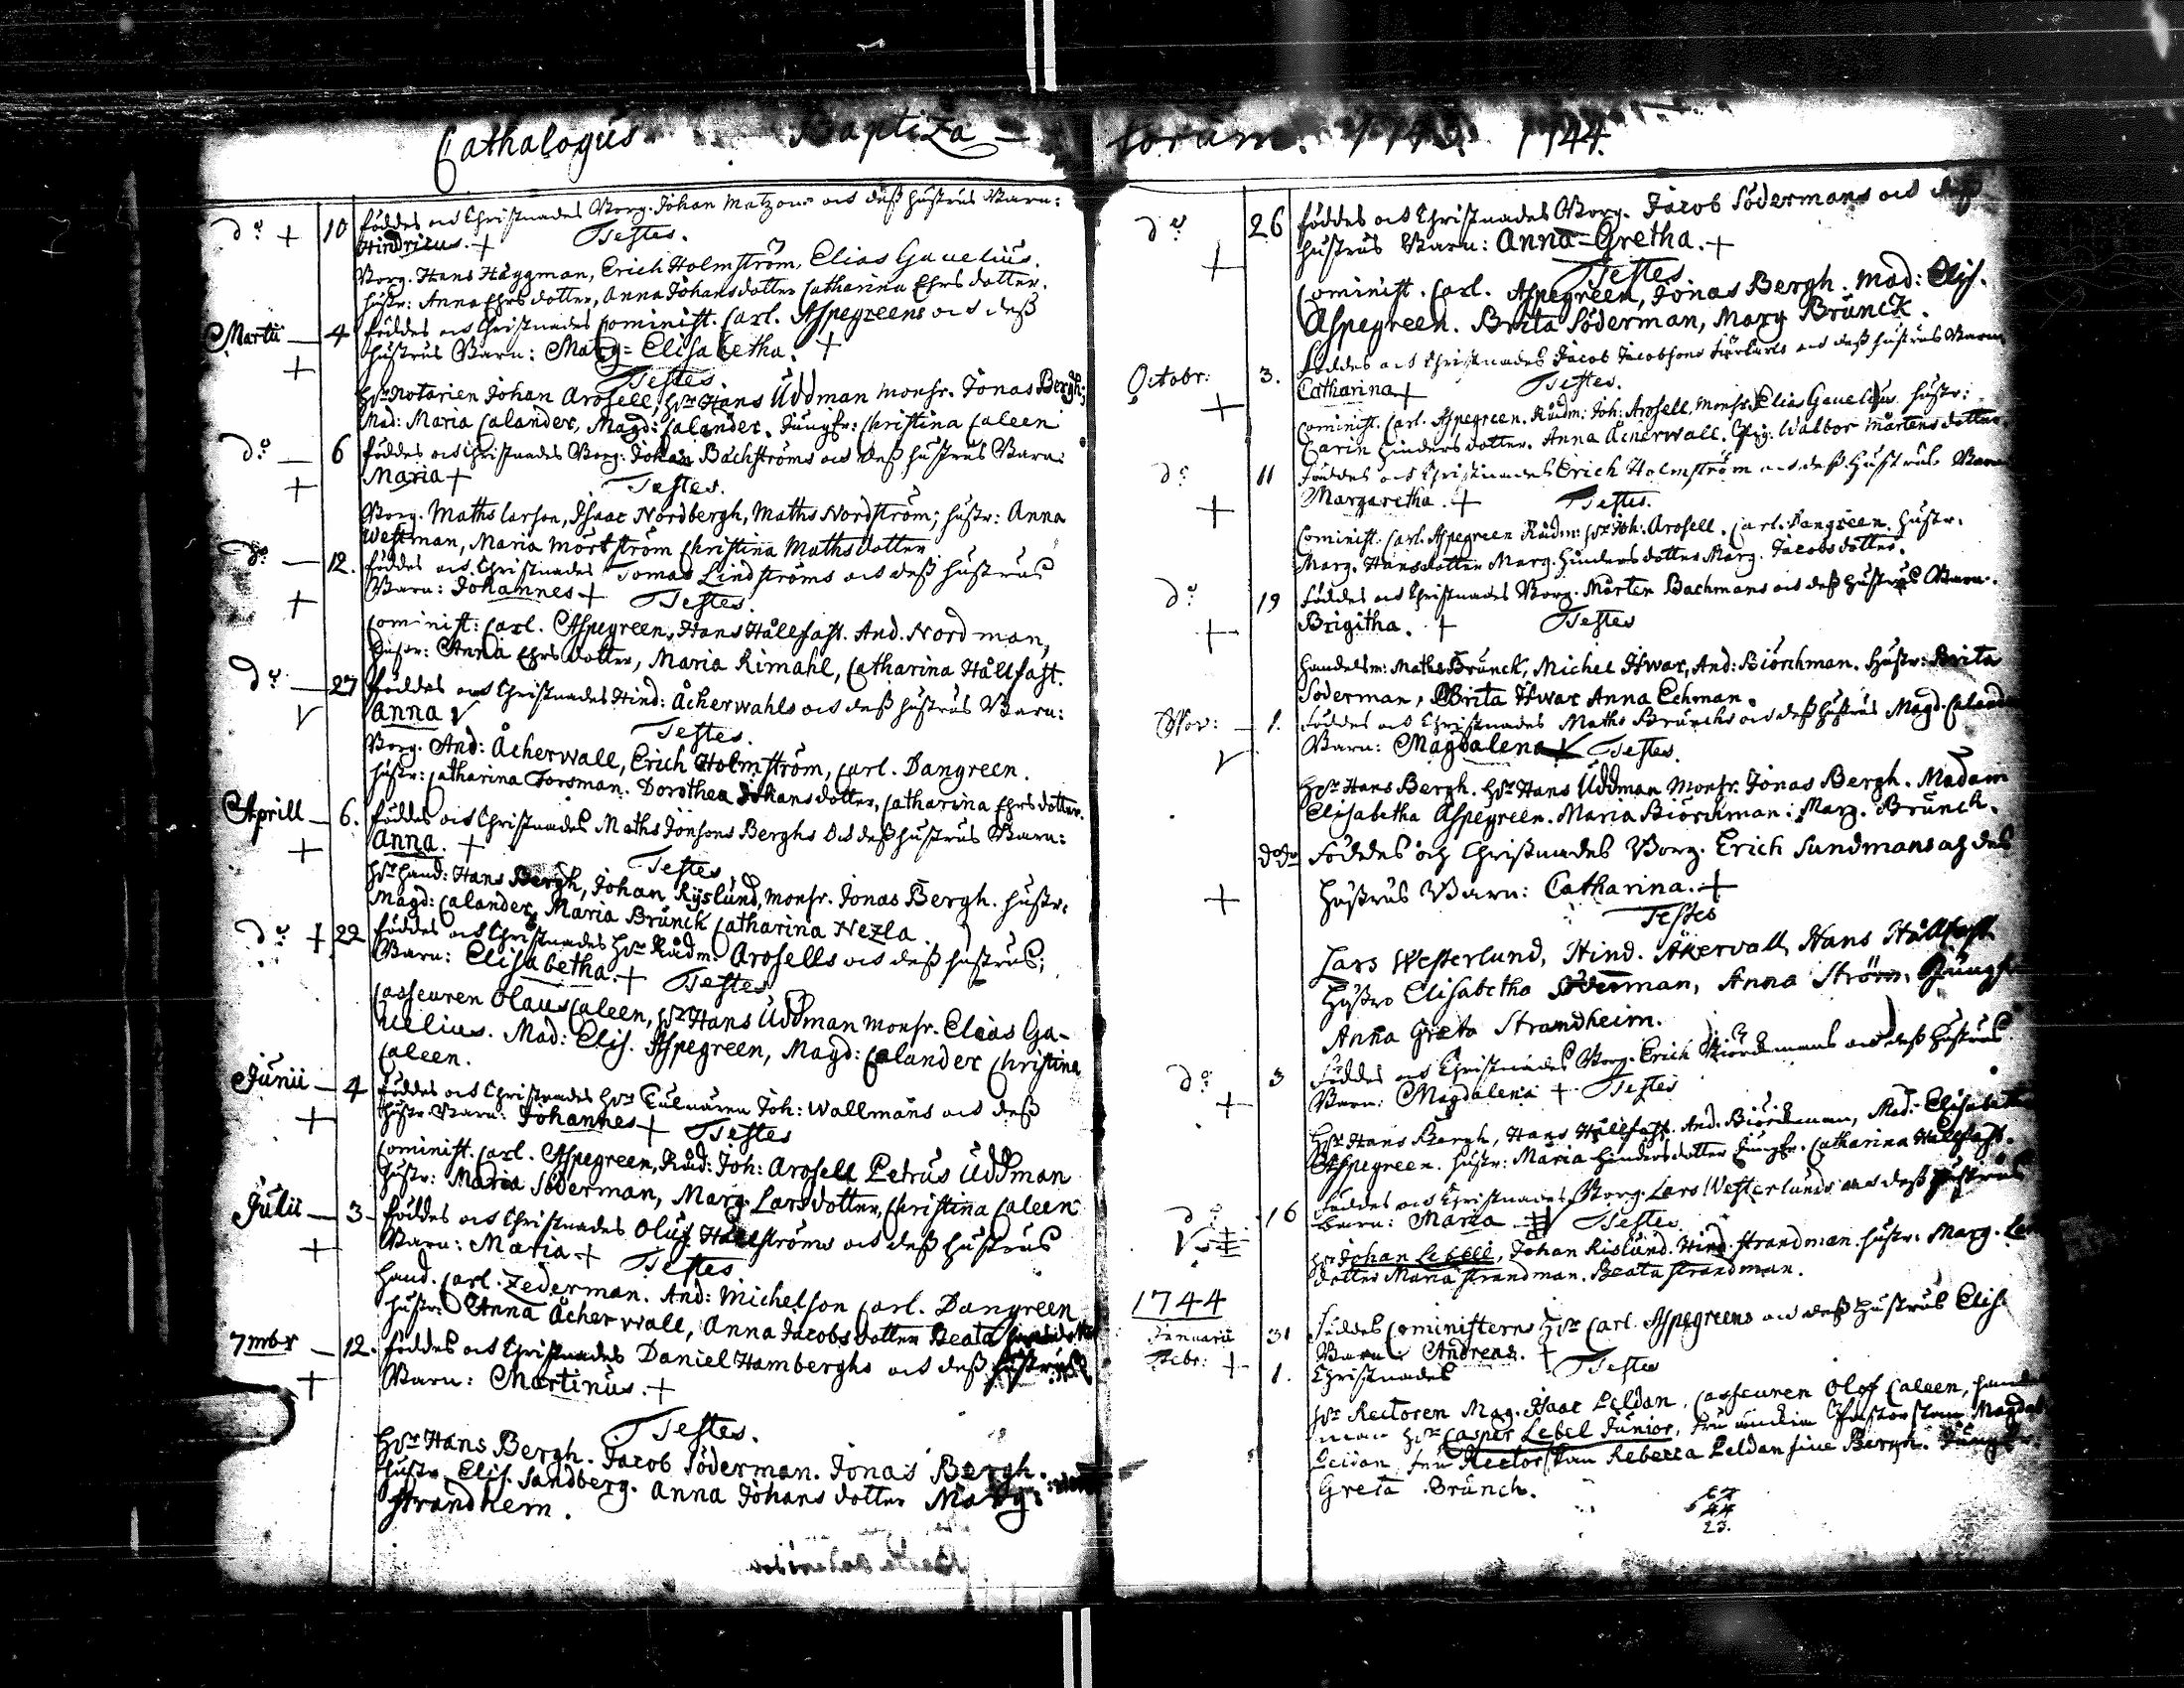 Cathalogus Baptiza-
torum. 1743. 1744.
do + 10 föddes ock Christnades Borg. Johan Matzons ock dess hustrus Barn:
Hindricus. + Testes.
Borg. Hans Häggman, Erich Holmström, Elias Gavelius.
hustr: Anna Ehrsdotter, Anna Johansdotter Catharina Ehrsdotter.
Martii 4 föddes ock Christnades Cominist. Carl. Aspegreens ock dess
hustrus Barn: Marg= Elisabetha. +
Testes.
Hr Notarien Johan Arosell, Hr Hans Uddman Monsr. Jonas Bergh;
Mad: Maria Calander, Magd: Calander, Jungfr: Christina Caleen
do 6 föddes ock Christnades Borg: Johan Bächströms ock dess hustrus Barn:
Maria + Testes.
Borg. Maths Larson, Isaac Nordbergh, Maths Nordström; hustr: Anna
Westman, Maria Mört ström Christina Mathsdotter
do 12. föddes ock Christnades Tomas Lindströms ock dess hustrus
Barn: Johannes + Testes.
Cominist: Carl. Aspegreen, Hans Hållfast. And. Nordman,
Hustr: Anna Ehrsdotter, Maria Rimahl, Catharina Hållfast.
do 27 föddes ock Christnades Hind: Åcherwahls ock dess hustrus Barn:
Anna V Testes.
Borg. And: Åcherwall, Erich Holmström, Carl. Dangreen.
hustr: Catharina Forsman. Dorothea Johansdotter, Catharina Ehrsdotter.
Aprill 6. föddes ock Christnades Maths Jonsons Berghs ock dess hustrus Barn:
Anna. + Testes
Hr Hand: Hans Bergh, Johan Ryslund, Monsr. Jonas Bergh. hustr:
Magd: Calander, Maria Brunck Catharina Nezla
do + 22 föddes ock Christnades Hr Rådm: Arosells ock dess hustrus;
Barn: Elisabetha. + Testes
Casseuren Olaus Caleen, Hr Hans Uddman Monsr. Elias Ga-
velius. Mad: Elis. Aspegreen, Magd: Calander Christina
Caleen.
Junii 4 föddes ock Christnades Hr Joh: Wallmans ock dess
hustr. Barn: Johannes + Testes
Cominist. Carl. Aspegreen, Råd: Joh: Arosell Petrus Uddman
hustr: Maria Söderman, Marg. Larsdotter, Christina Caleen
Julii 3 föddes ock Christnades Oluf Hällströms ock dess hustrus
Barn: Maria + Testes
Hand. Carl. Zederman. And: Michelson Carl. Dangreen
hustr: Anna Åcherwall, Anna Jacobsdotter Beata
7mbr 12. föddes ock Christnades Daniel Hamberghs ock dess hustrus
Barn: Martinus. +
Testes.
Hr Hans Bergh. Jacob Söderman. Jonas Bergh.
hustr. Elis. Sandberg. Anna Johansdotter Marg:
Strandhem.
do 26 föddes ock Christnades Borg. Jacob Södermans ock dess
hustrus Barn: Anna=Gretha. +
Testes
Cominist. Carl. Aspegreen, Jonas Bergh. Mad: Elis.
Aspegreen. Brita Söderman, Marg Brunck.
Octobr: 3. föddes ock Christnades Jacob Jacobsons ock dess hustrus Barn
Catharina + Testes.
Cominist. Carl. Aspegreen. Rådm: Joh: Arosell, Monsr. Elias Gavelius hustr:
Carin Hindersdotter. Anna Åcherwall. Pig. Walbor Mårtensdotter.
do 11 föddes ock Christnades Erich Holmström ock dess hustrus Barn
Margaretha. + Testes.
Cominist. Carl. Aspegreen Rådm: Hr Joh: Arosell. Carl. Dangreen. hustr.
Marg. Hansdotter Marg. Hindersdotter Marg. Jacobsdotter.
do 19 föddes ock Christnades Borg. Mårten Bachmans ock dess hustrus Barn.
Brigitha. + Testes
Handelsm: Maths Brunck, Michel Iswar, And: Biörchman. Hustr: Brita
Söderman, Brita Iswar Anna Echman.
Nov: 1. föddes ock Christnades Maths Bruncks ock dess hustrus Magd. Caland
Barn: Magdalena V Testes.
Hr Hans Bergh. Hr Hans Uddman Monsr. Jonas Bergh. Madam
Elisabetha Aspegreen. Maria Biörchman: Marg. Brunck.
dodo föddes och Christnades Borg. Erich Sundmans och des
Hustrus Barn: Catharina. +
Testes
Lars Westerlund, Hind. Åkervall, Hans Hållfast
Hustro Elisabetha Söderman, Anna Ström, Jungf
Anna Greta Strandheim.
do 3 föddes ock Christnades Borg. Erich Biörckmans ock dess hustrus
Barn: Magdalena + Testes
Hr Hans Bergh, Hans Hållfast. And. Biörckman, Mad: Elisabeta
Aspegreen. hustr: Maria Hindersdotter Jungfr. Catharina Hållfast.
do 16 föddes ock Christnades Borg. Lars Westerlunds ock dess hustrus
Barn: Maria Testes
Hr Johan Lebell, Johan Rislund. Hind. Strandman. hustr: Marg. La
dotter Maria Strandman. Beata Strandman.
1744
Januarii 31 föddes Cominsterns Hr Carl. Aspegreens ock dess hustrus Elis.
Barn: Andreas. +
Febr: + 1. Christnades Testes
Hr Rectoren Mag. Isaac Peldan, Casseuren Olof Caleen, Hand
man Hr Casper Lebel Junior, fru Pastorskan Magdal
fru Rectorskan Rebecca Peldan sine Bergh. Jungfr.
Greta Brunck.
44
23.